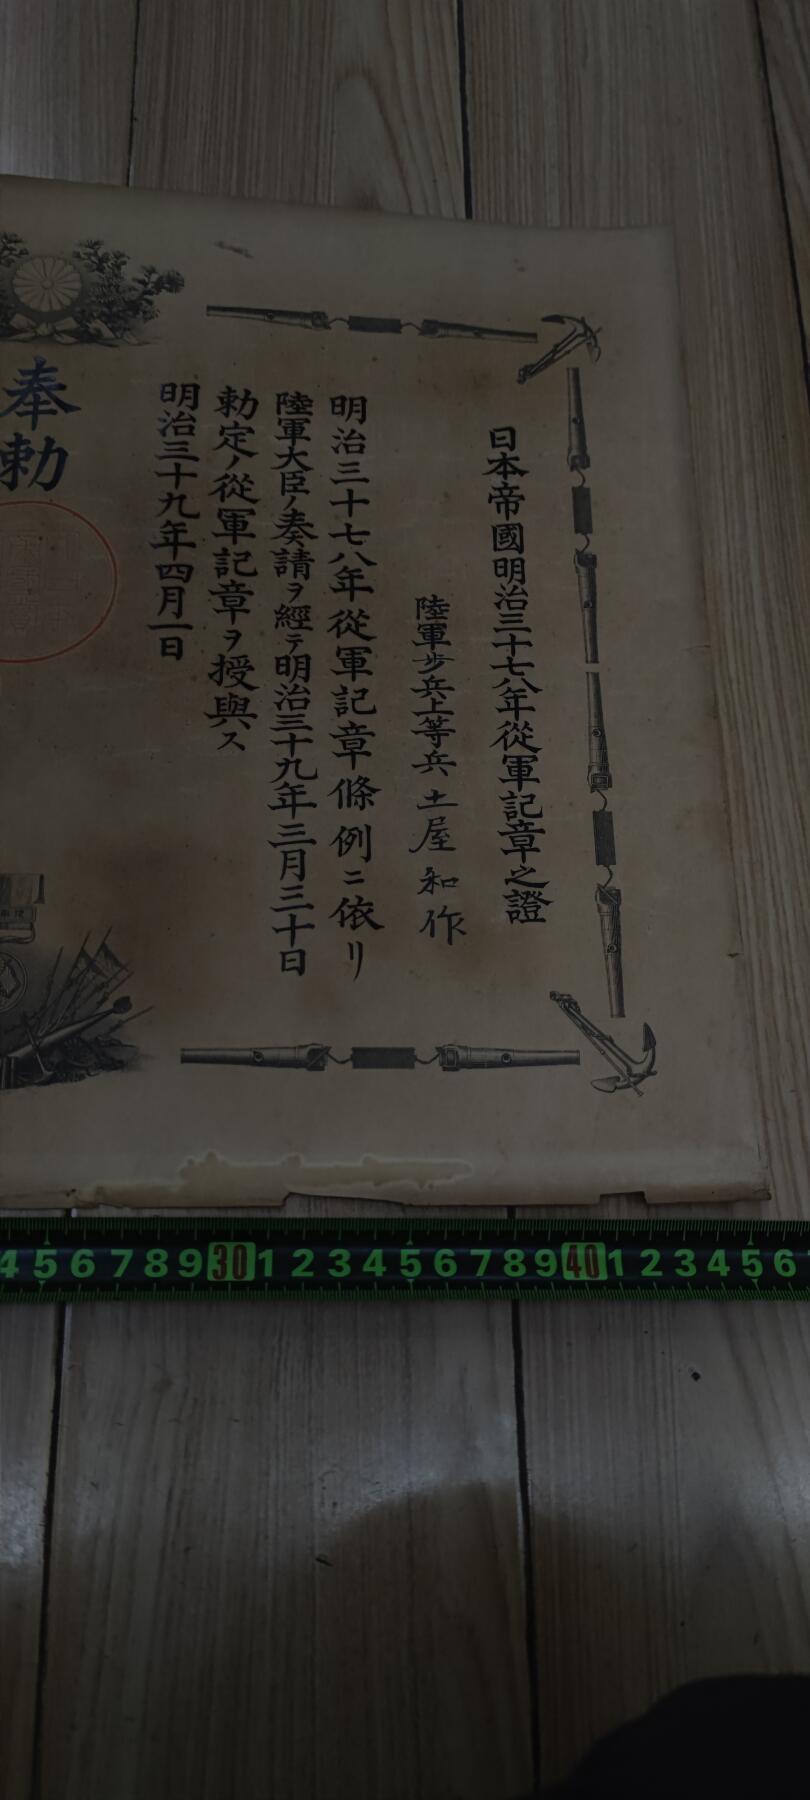 日本帝國明治三十七八年從軍記章之證
陸軍歩兵上等兵 土屋和作
明治三十七八年從軍記章條例ニ依リ
陸軍大臣ノ奏請ヲ經テ明治三十九年三月三十日
勅定ノ從軍記章ヲ授與ス
明治三十九年四月一日
奉勅
4 5 6 7 8 9 30 1 2 3 4 5 6 7 8 9 40 1 2 3 4 5 6